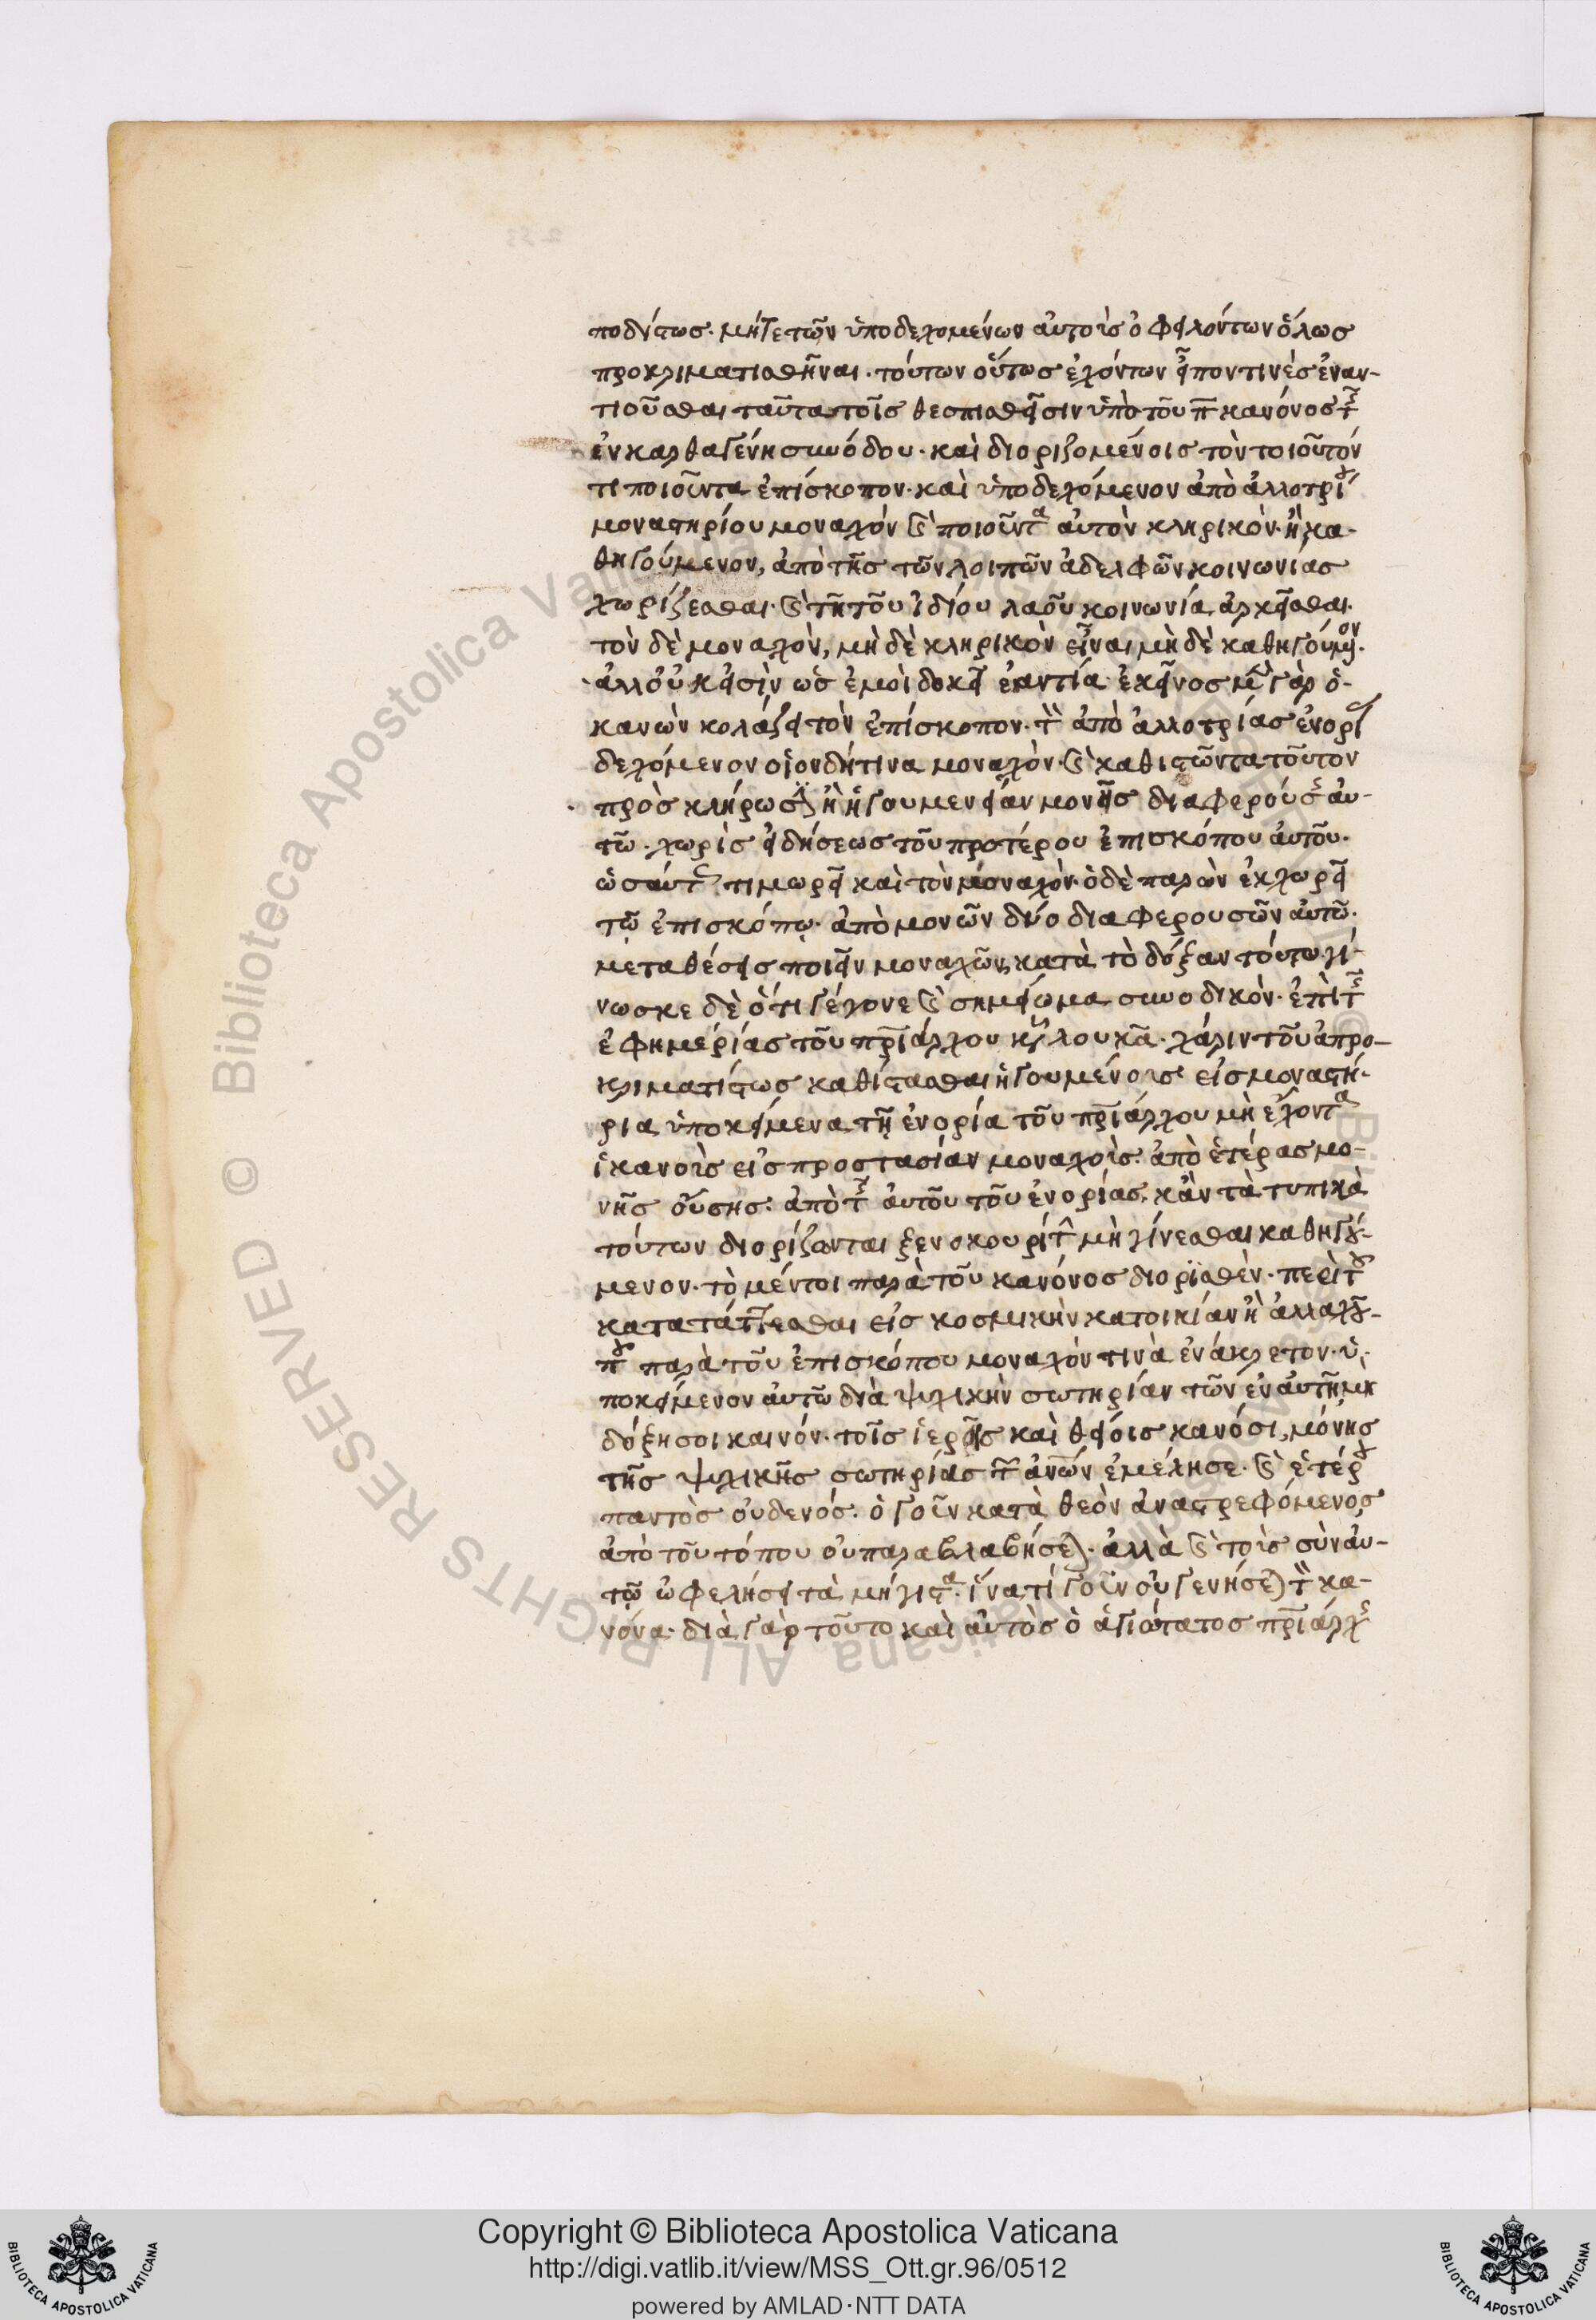 ποδίστως. μήτε τῶν ὑποδεχομένων αὐτοὺς ὀφειλόντων ὅλως
προκριματισθῆναι. τούτων οὕτως ἐχόντων εἶπον τινὲς ἐναν-
τιοῦσθαι ταῦτα τοῖς θεσπισθεῖσιν ὑπὸ τοῦ π̅ κανόνος τῆς
ἐν καρθαγένη συνόδου. καὶ διοριζομένοις τὸν τοιοῦτόν
τι ποιοῦντα ἐπίσκοπον. καὶ ὑποδεχόμενον ἀπὸ ἀλλοτρίου
μοναστηρίου μοναχὸν καὶ ποιοῦντα αὐτὸν κληρικὸν. ἢ κα-
θηγούμενον, ἀπὸ τῆς τῶν λοιπῶν ἀδελφῶν κοινωνίας
χωρίζεσθαι. καὶ τῆ τοῦ ἰδίου λαοῦ κοινωνία ἀρκεῖσθαι.
τὸν δὲ μοναχὸν, μὴ δὲ κληρικὸν εἶναι μὴ δὲ καθηγούμενον.
ἀλλ' οὐκ εἰσὶν ὡς ἐμοὶ δοκεῖ ἐναντία. ἐκεῖνος μὲν γὰρ ὁ
κανὼν κολάζει τὸν ἐπίσκοπον. τὸν ἀπὸ ἀλλοτρίας ἐνορίας
δεχόμενον οἱονδήτινα μοναχόν. καὶ καθιστῶντα τοῦτον
πρὸς κλήρωσιν ἢ ἡγουμενείαν μονῆς διαφερούσης αὐ-
τῶ. χωρὶς εἰδήσεως τοῦ προτέρου ἐπισκόπου αὐτοῦ.
ὡσαύτως τιμωρεῖ καὶ τὸν μοναχόν. ὁ δὲ παρὼν ἐκχωρεῖ
τῷ ἐπισκόπῳ. ἀπὸ μονῶν δύο διαφερουσῶν αὐτῶ.
μεταθέσεις ποιεῖν μοναχῶν, κατὰ τὸ δόξαν τούτω γί-
νωσκε δὲ ὅτι γέγονε καὶ σημείωμα συνοδικὸν. ἐπὶ τῆς
ἐφημερίας τοῦ πριάρχου κυροῦ λουκᾶ. χάριν τοῦ ἀπρο-
κριματίστως καθίστασθαι ἡγουμένους εἰς μοναστή-
ρια ὑποκείμενα τῇ ἐνορία τοῦ πριάρχου μὴ ἔχοντα
ἱκανοὺς εἰς προστασίαν μοναχοὺς. ἀπὸ ἑτέρας μο-
νῆς οὔσης. ἀπὸ τῆς αὐτοῦ τοῦ ἐνορίας. κἂν τὰ τυπικὰ
τούτων διορίζονται ξενοκουρίτην μὴ γίνεσθαι καθηγού-
μενον. τὸ μέντοι παρὰ τοῦ κανόνος διορισθὲν. περὶ τοῦ
κατατάττεσθαι εἰς κοσμικὴν κατοικίαν ἢ ἀλλαχοῦ
που παρὰ τοῦ ἐπισκόπου μοναχόν τινὰ ἐνάρετον. ὑ-
ποκείμενον αὐτῶ διὰ ψυχικὴν σωτηρίαν τῶν ἐν αὐτῆ μὴ
δόξη σοι καινόν. τοῖς ἱεροῖς καὶ θείοις κανόσι, μόνης
τῆς ψυχικῆς σωτηρίας τῶν ἀνων ἐμέλησε. καὶ ἑτέρου
παντὸς οὐδενός. ὁ γοῦν κατὰ θεὸν ἀναστρεφόμενος
ἀπὸ τοῦ τόπου οὐ παραβλαβήσεται. ἀλλὰ καὶ τοὺς σὺν αὐ-
τῷ ὠφελήσει τὰ μέγιστα. ἵνα τί γοῦν οὐ γενήσεται τὸν κα-
νόνα. διὰ γὰρ τοῦτο καὶ αὐτὸς ὁ ἁγιώτατος πριάρχης
Copyright © Biblioteca Apostolica Vaticana
http://digi.vatlib.it/view/MSS_Ott.gr.96/0512
powered by AMLAD·NTT DATA
BIBLIOTECA APOSTOLICA VATICANA
BIBLIOTECA APOSTOLICA VATICANA